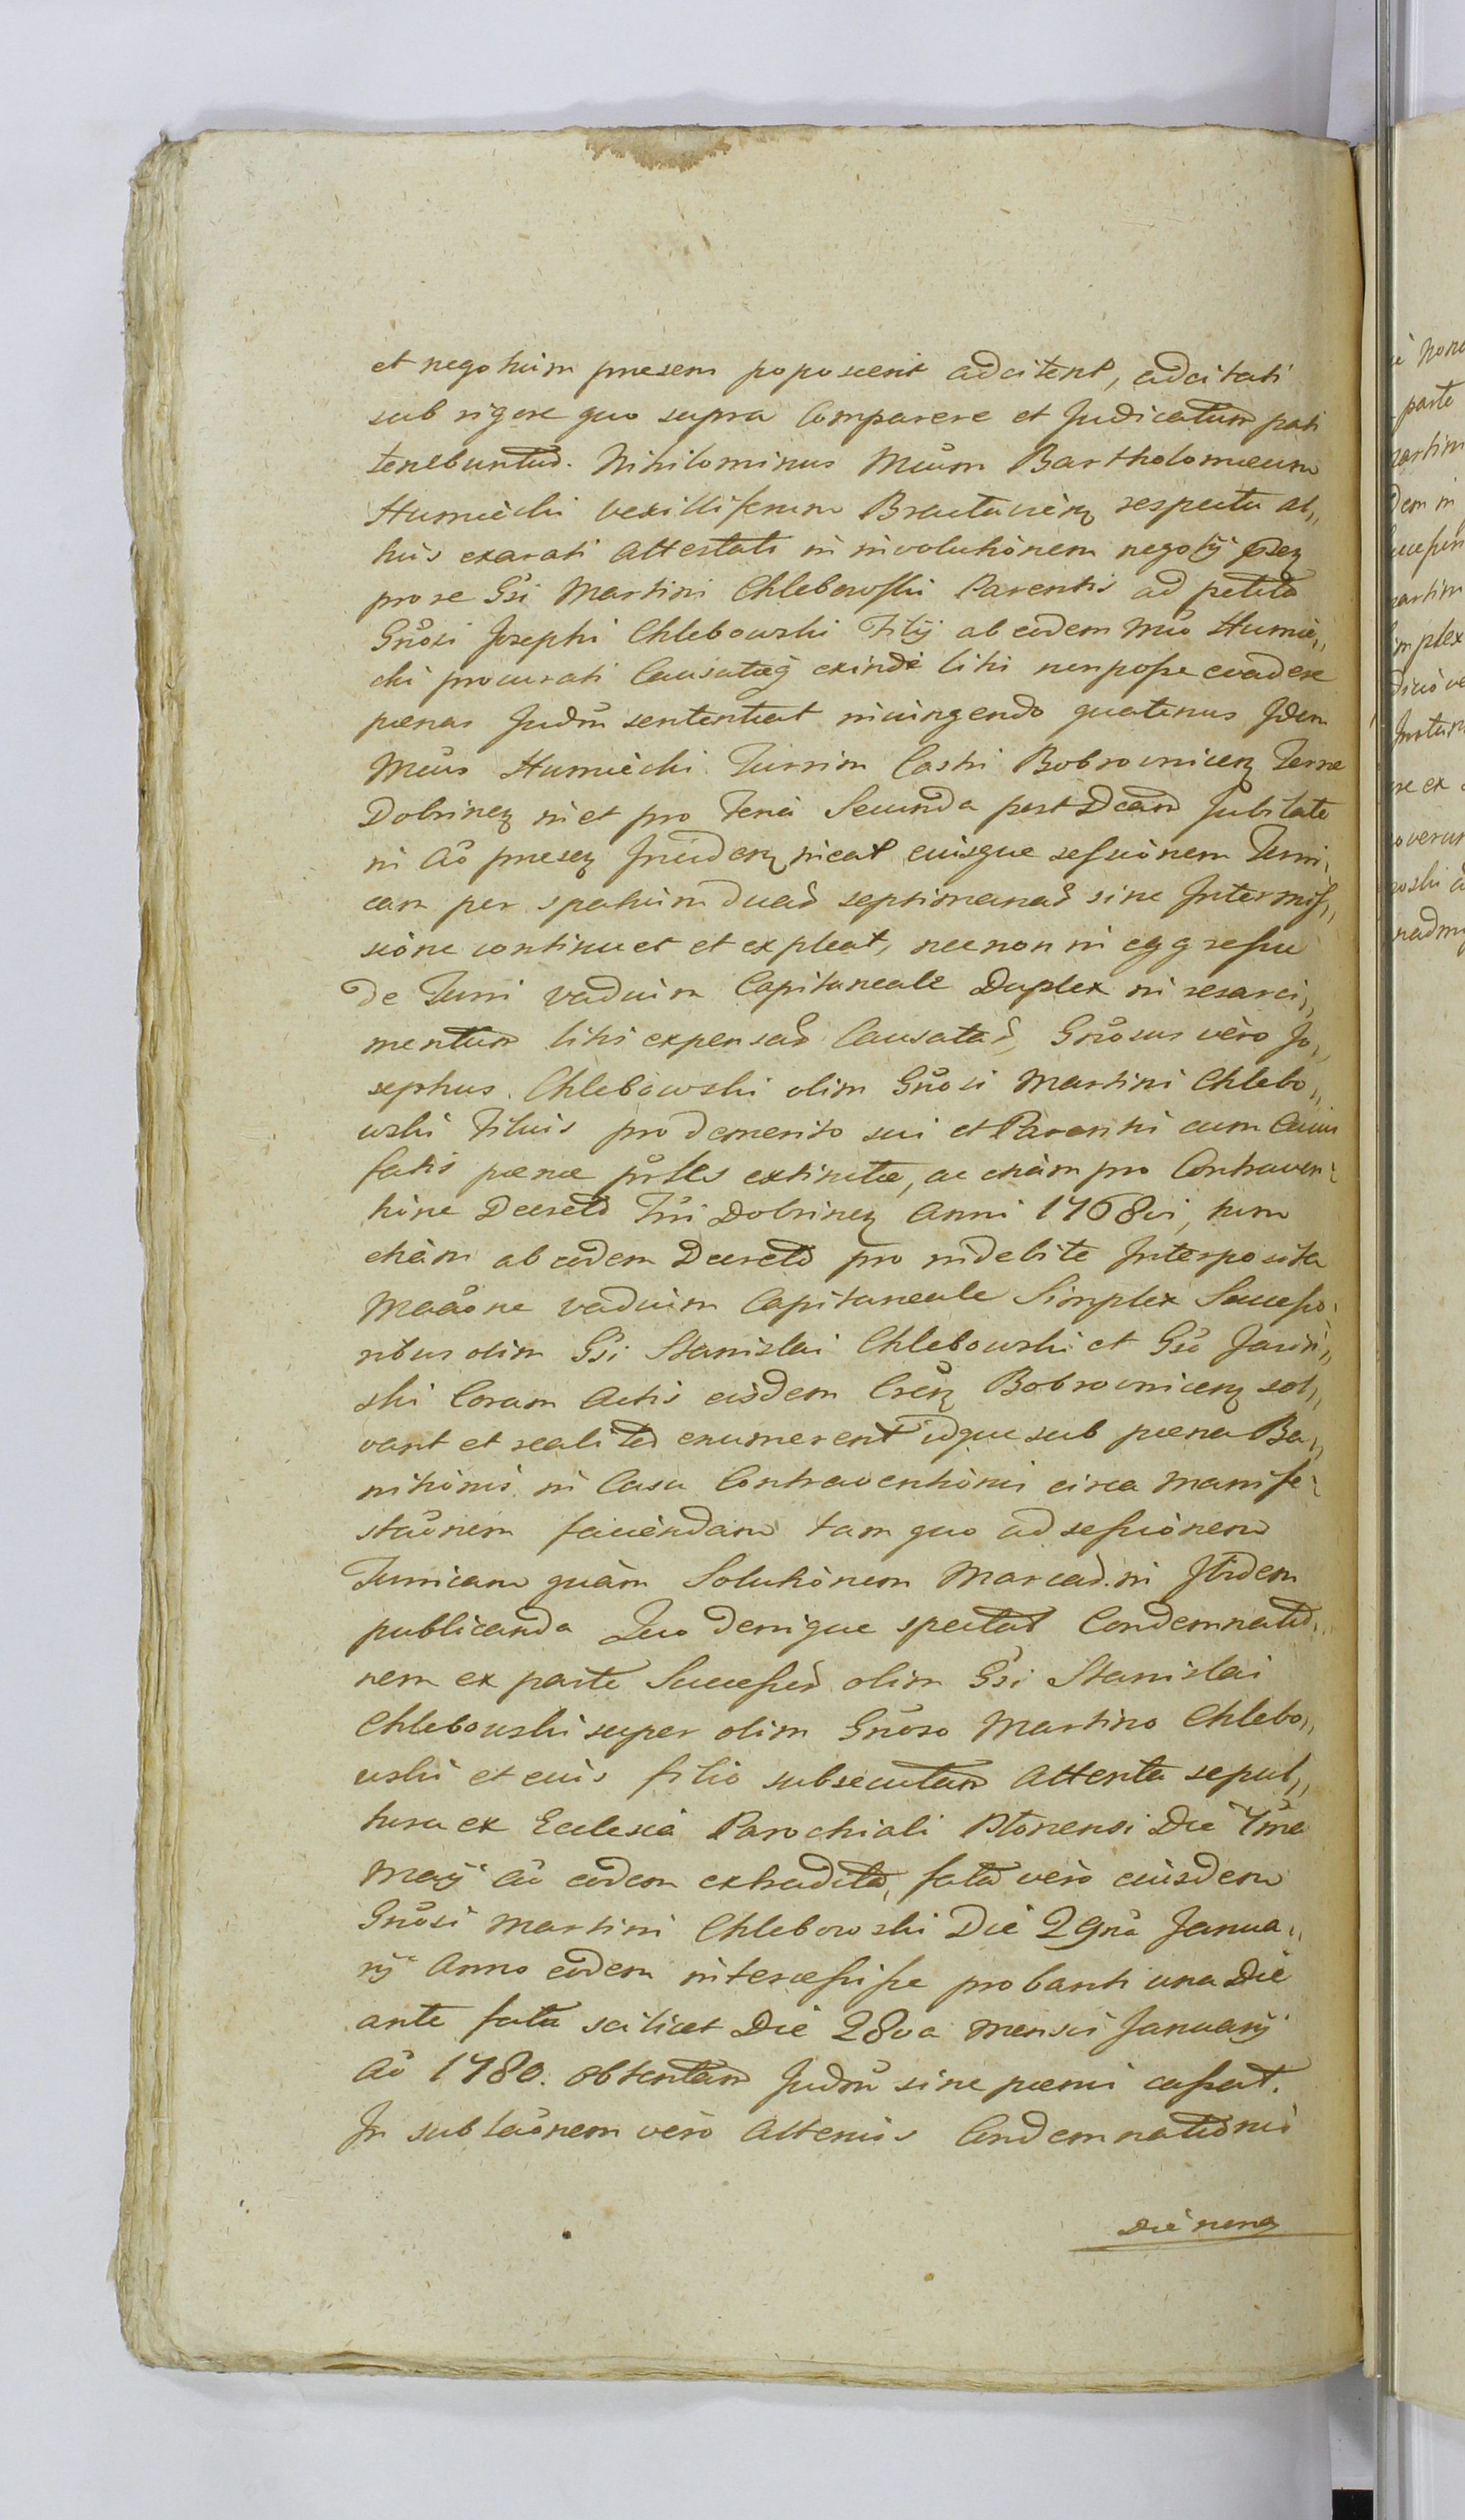 et negotium praesens poposcerit adcitent, adcitati
sub rigore quo supra Comparere et Judicatum pati
tenebuntur. Nihilominus Mcum Bartholomaeum
Humięcki vexilliferum Braclavien respectu al„
tius exarati Attestati in involutionem negotij psen
pro re Gsi Martini Chlebowski Parentis ad petita
Gnosi Josephi Chlebowski Filij ab eodem Mco Humię„
cki procurati Causataq exinde liti non posse evadere
poenas Judm sententiat iniungendo quatenus Idem
Mcus Humięcki Turrim Castri Bobrovnicen Terrae
Dobrinen in et pro Feria Secunda post Dcam Jubilate
in Ao praesen Inciden ineat eiusque sessionem Turri„
cam per spatium duar septimanar sine Intermis„
sione continuet et expleat, nec non in eggressu
de Turri vadium Capitaneale Duplex in resarci„
mentum litis expensar Causatar, Gnosus vero Jo„
sephus Chlebowski olim Gnosi Martini Chlebo„
wski Filius pro demerito sui et Parentis cum Cuius
fatis poenae prles extinctae, ac etiam pro Contraven„
tione Decreto Tri Dobrinen Anni 1768vi, tum
etiam ab eodem Decreto pro indebite Interposita
Maaone vadium Capitaneale Simplex Successo„
ribus olim Gsi Stanislai Chlebowski et Gso Jasin„
ski Coram Actis eisdem Cren Bobrovnicen sol„
vant et realiter enumerent idque sub poena Ba„
nitionis in Casu Contraventionis circa Manife„
staonem faciendam tam quo ad sessionem
Turricam quam Solutionem Marcar. in Ibidem
publicanda Quo denique spectat Condemnatio„
nem ex parte Successor olim Gsi Stanislai
Chlebowski super olim Gnoso Martino Chlebo„
wski et eius filio subsecutam Attenta sepul„
tura ex Ecclesia Parochiali Die 4ta
Maij Ao eodem extradita, fata vero eiusdem
Gnosi Martini Chlebowski Die 29na Janua„
rij Anno eodem intercessisse probanti una Die
ante fata scilicet Die 28va Mensis Januarij
Ao 1780. obtentam Judm sine poenis cassat.
In sublaonem vero Alterius Condemnationis
Die nona